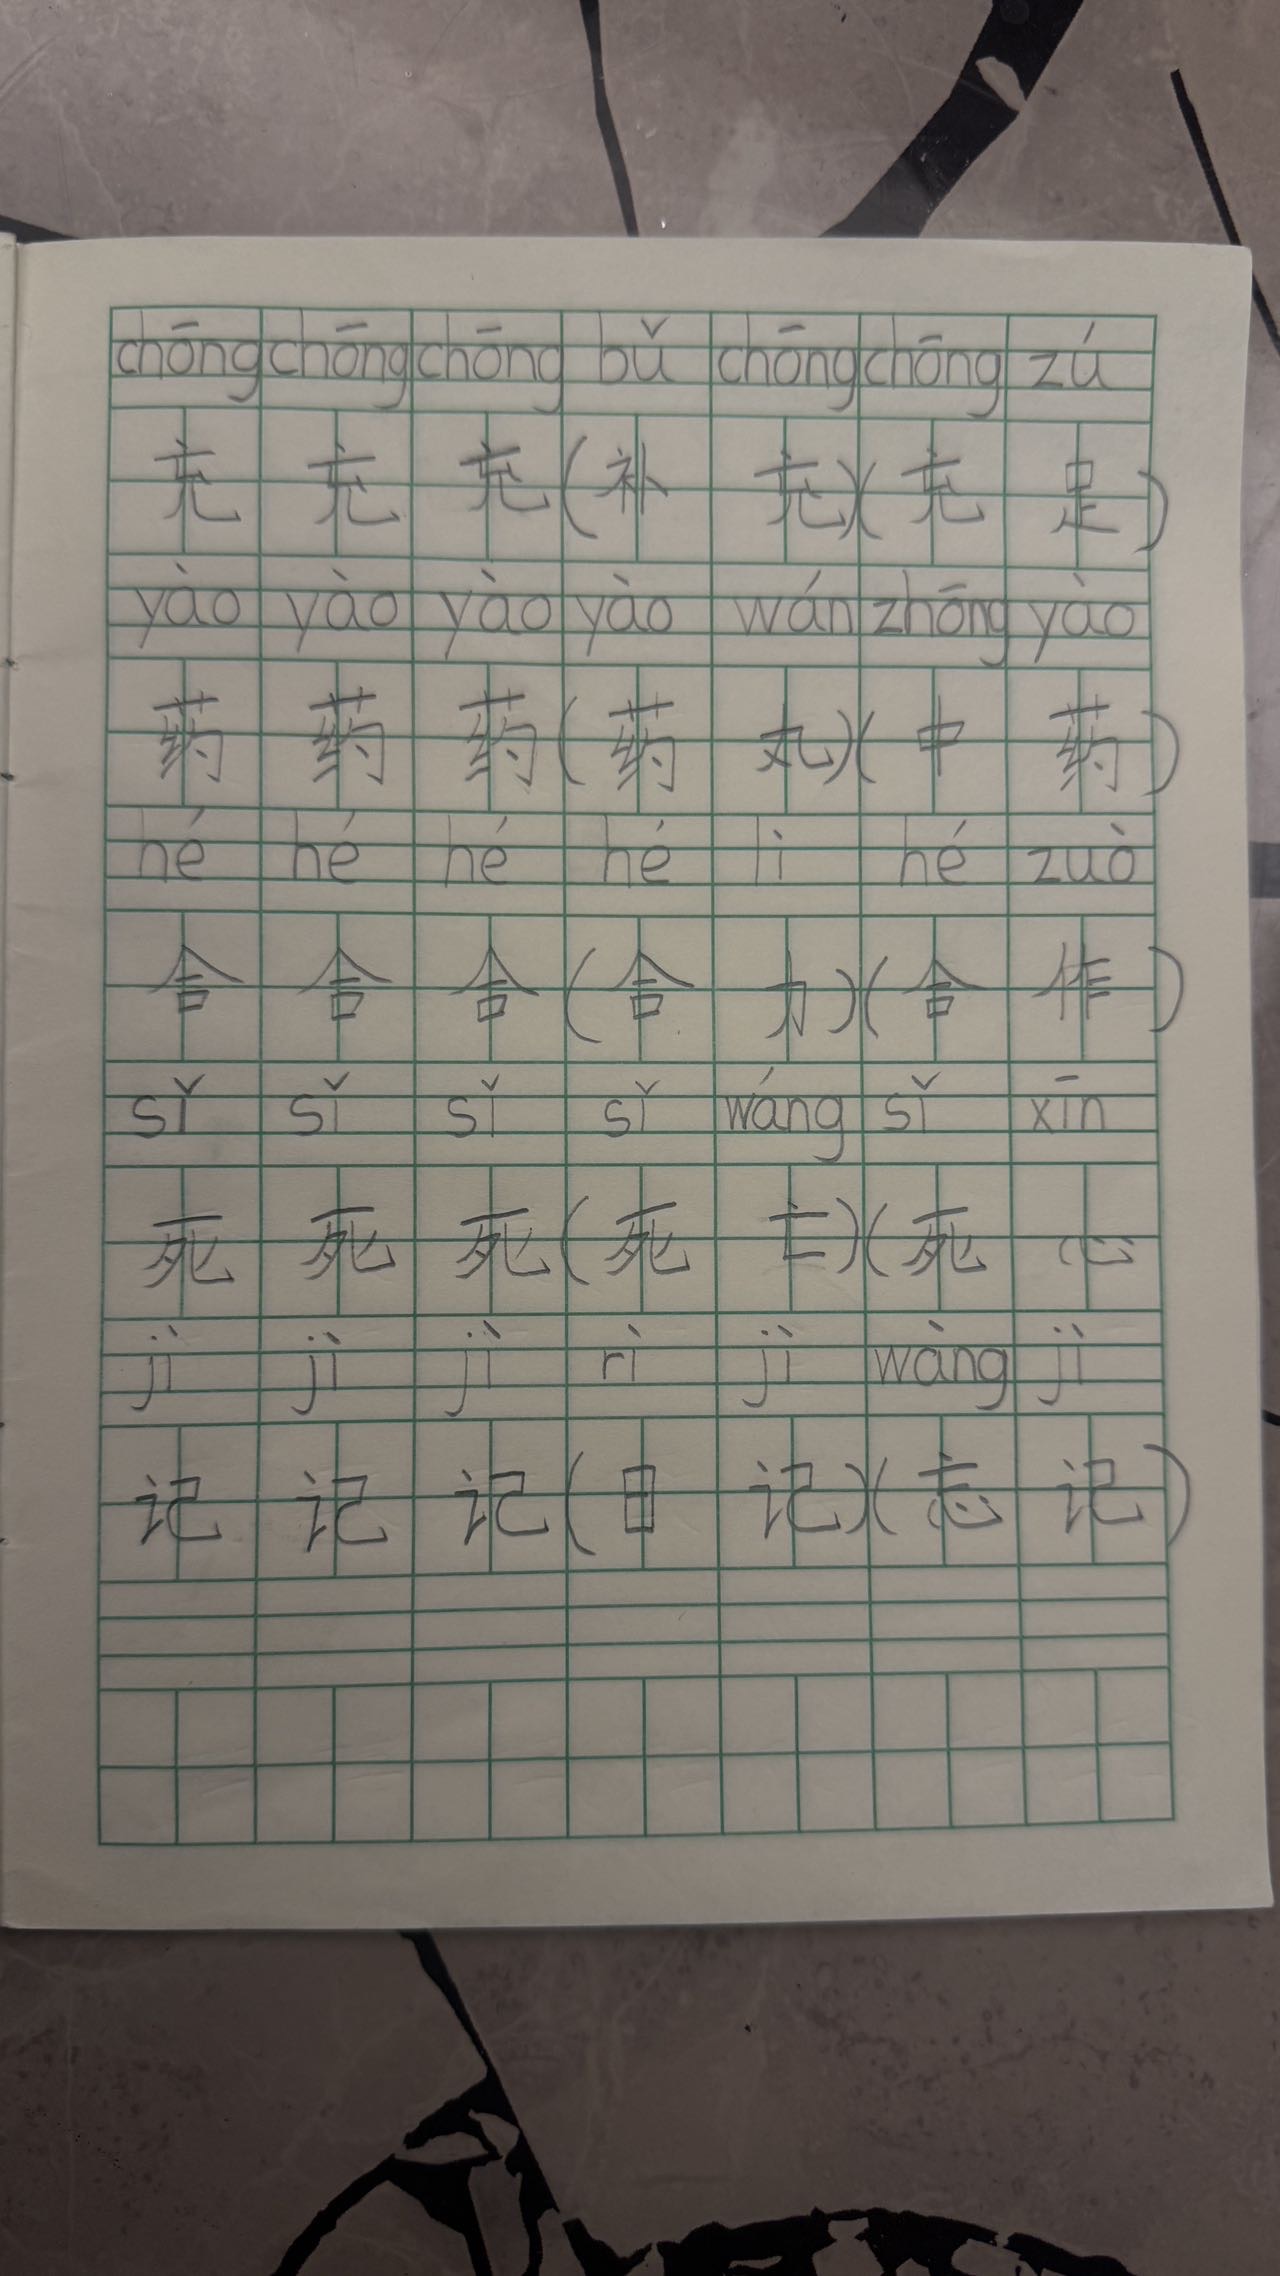 chōng chōng chōng bǔ chōng chōng zú
充 充 充 (补 充)(充 足)
yào yào yào yào wán zhōng yào
药 药 药 (药 丸)(中 药)
hé hé hé hé lì hé zuò
合 合 合 (合 力)(合 作)
sǐ sǐ sǐ sǐ wáng sǐ xīn
死 死 死 (死 亡)(死 心)
jì jì jì rì jì wàng jì
记 记 记 (日 记)(忘 记)